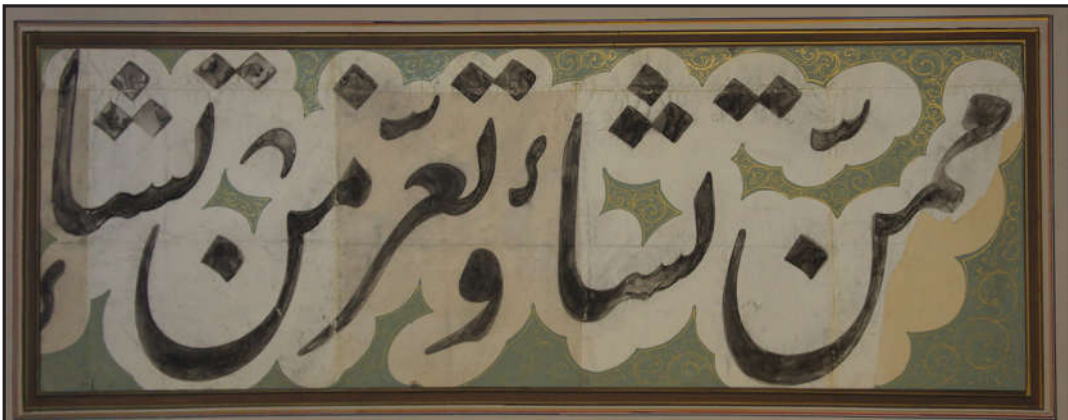 ممّن تشاء وتعزّ من تشاء